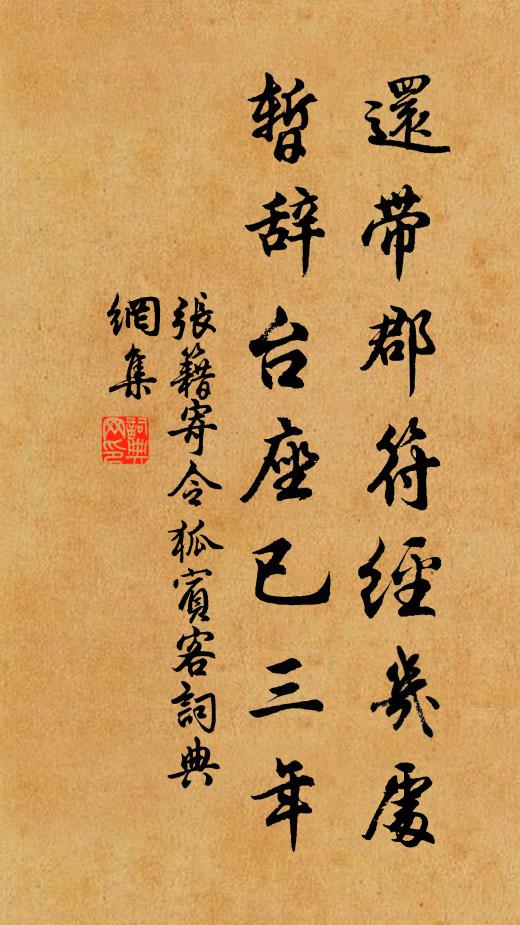 還帶郡符經幾處
暫辞台座已三年
張籍寄令狐賓客詞典
網集
詞典
网印